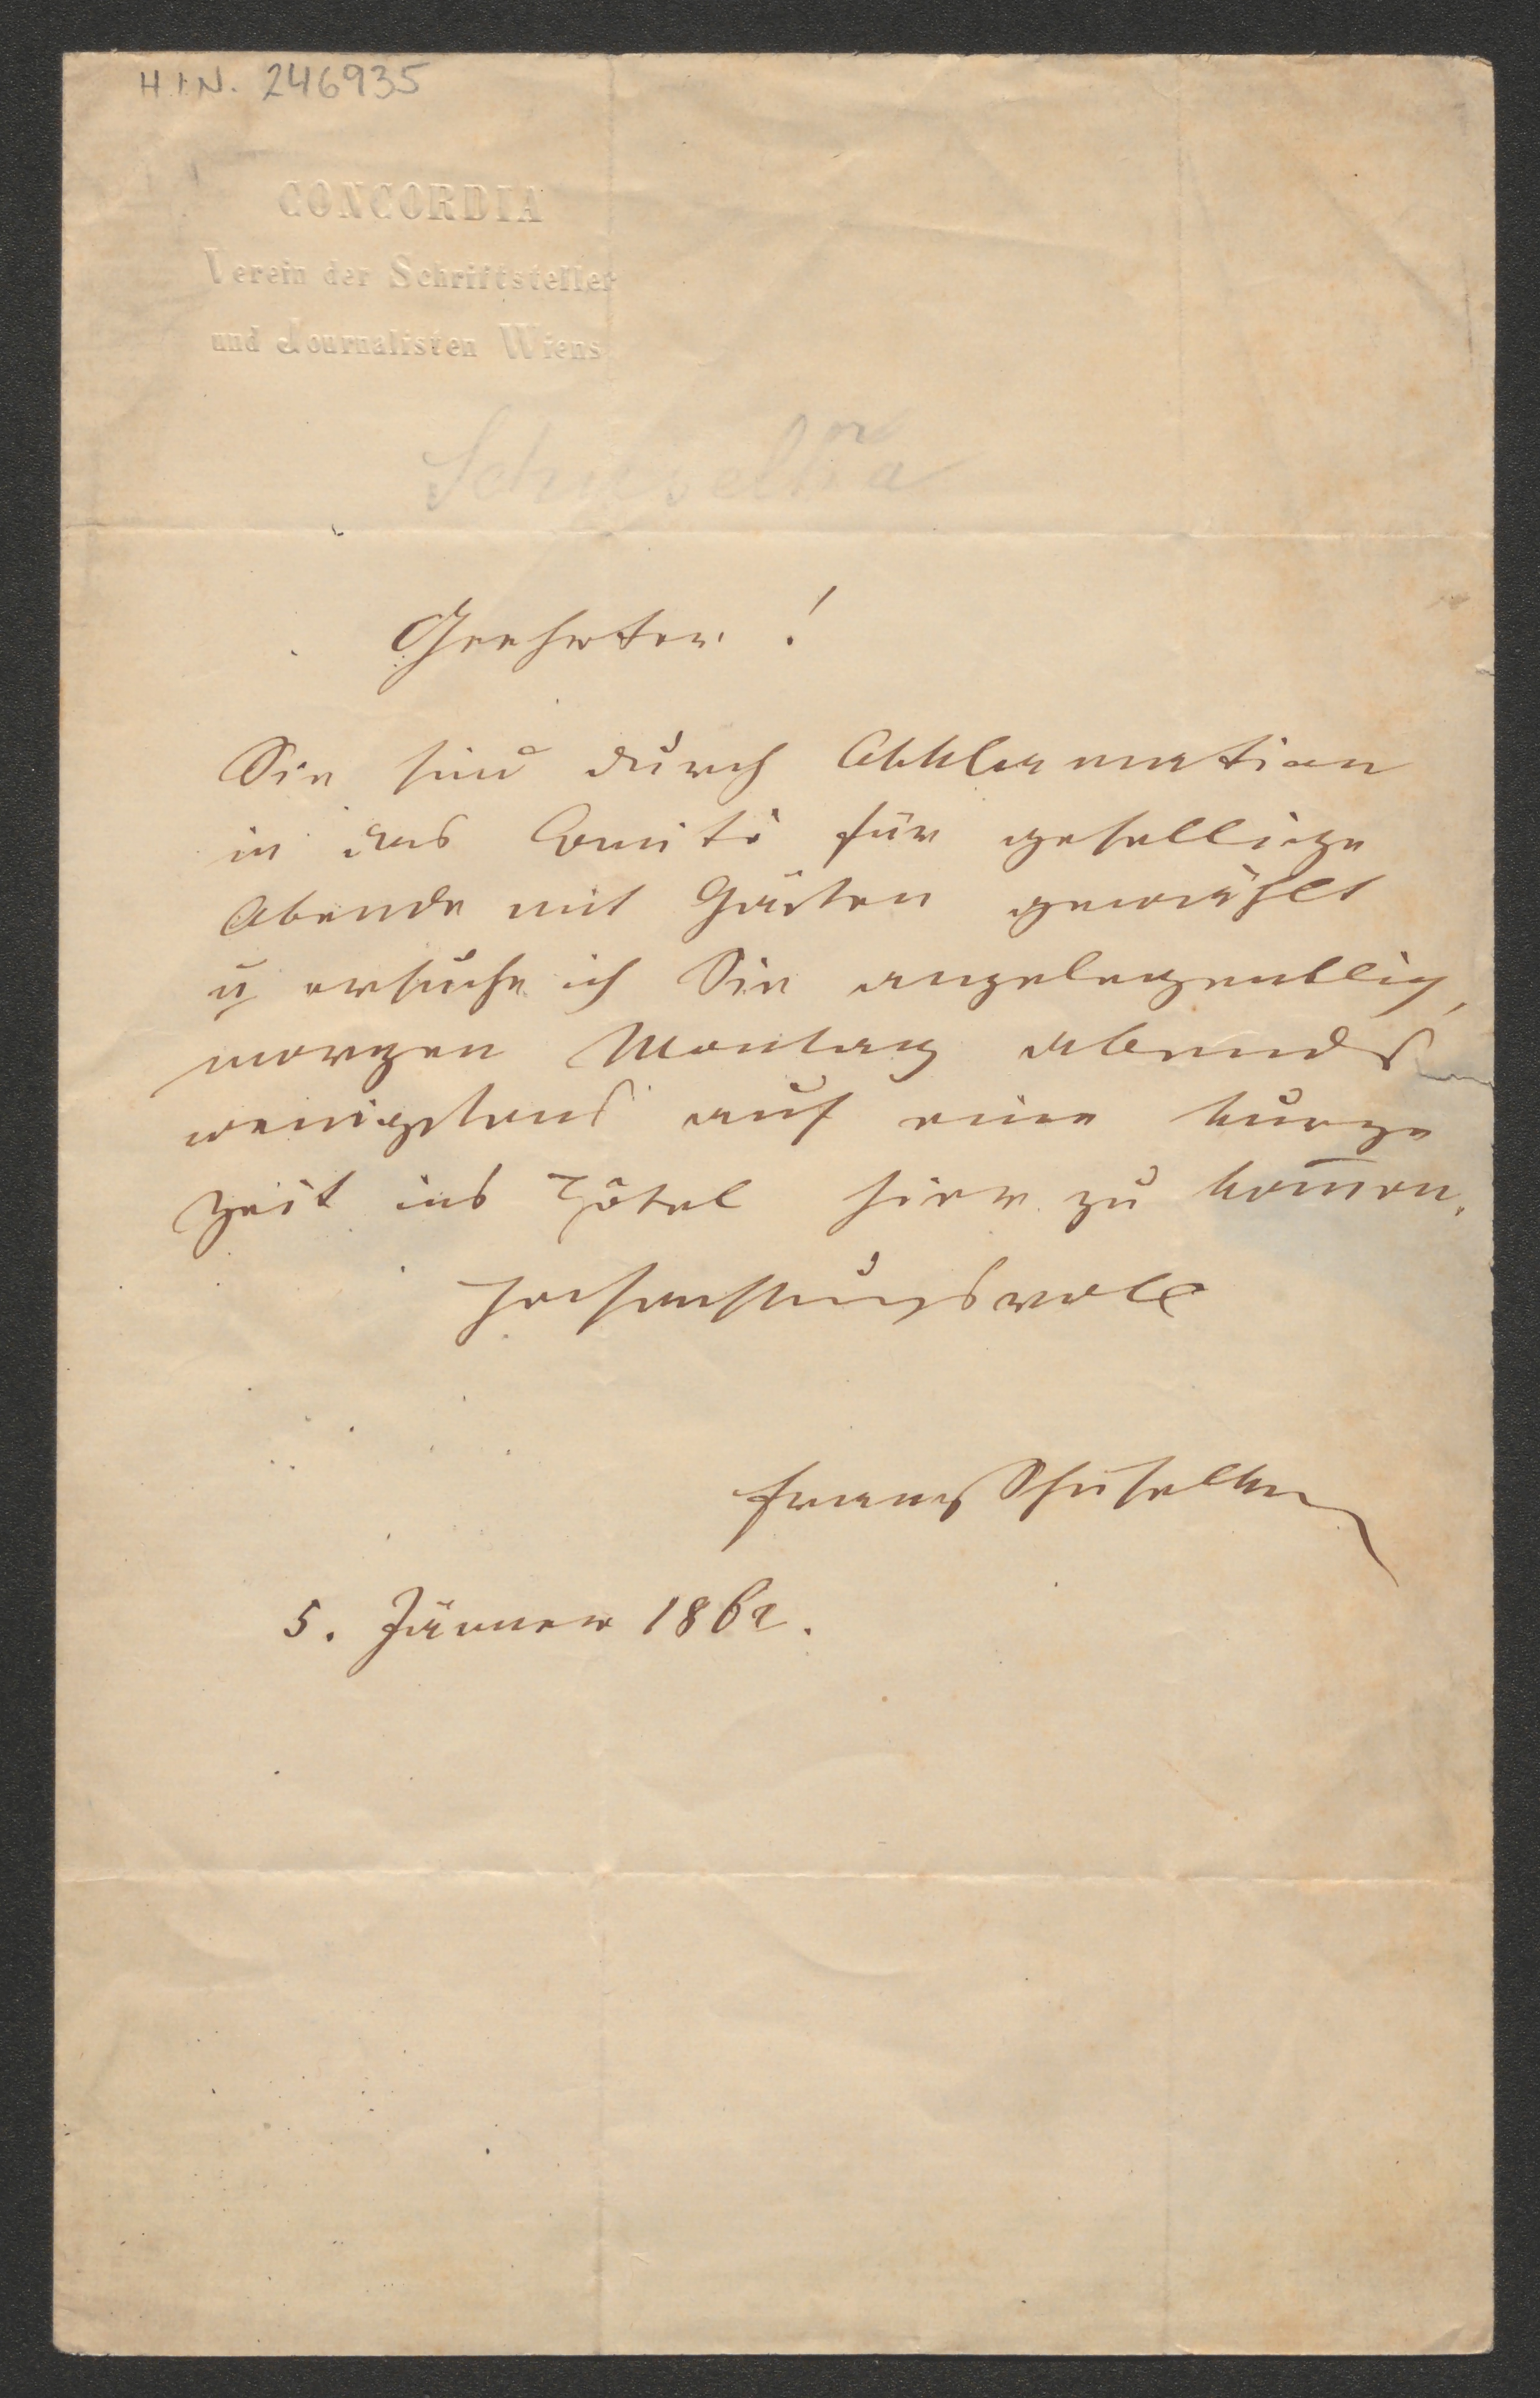 H.I.N. 246935
CONCORDIA
Verein der Schriftsteller
und Journalisten Wiens
Schuselka
Geehrter!
Sie sind durch Akklamation
in das Comité für gesellige
Abende mit Gästen gewählt
u ersuche ich Sie angelegentlich,
morgen Montag abends
wenigstens auf eine kurze
Zeit ins Hôtel hier zu kom̅en.
Hochachtungsvoll
Franz Schuselka
5. Jänner 1862.